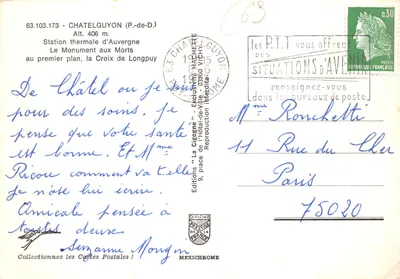 63.103.173 - CHATELGUYON (P.-de-D.)
Alt. 406 m.
Station thermale d'Auvergne
Le Monument aux Morts
au premier plan, la Croix de Longpuy
De Châtel ou je suis
pour des soins, je
pense que votre santé
est bonne. Et Mme
Ricou comment va t'elle
je n'ose lui écrire.
Amicale pensée à
toutes deux
Suzanne Mougin
Collectionnez les Cartes Postales !
Editions "La Cigogne" - Exclusivité HACHETTE
9, place de l'Hôtel-de-Ville - 03200 VICHY
Reproduction interdite
MEXICHROME
63
63 CHATELGUYON
DOME
les P.T.T vous offrent
DES
SITUATIONS d'AVENIR
renseignez-vous
dans les bureaux de poste
0,30
REPUBLIQUE FRANÇAISE
Mme Ronchetti
11 Rue du Cher
Paris
75020